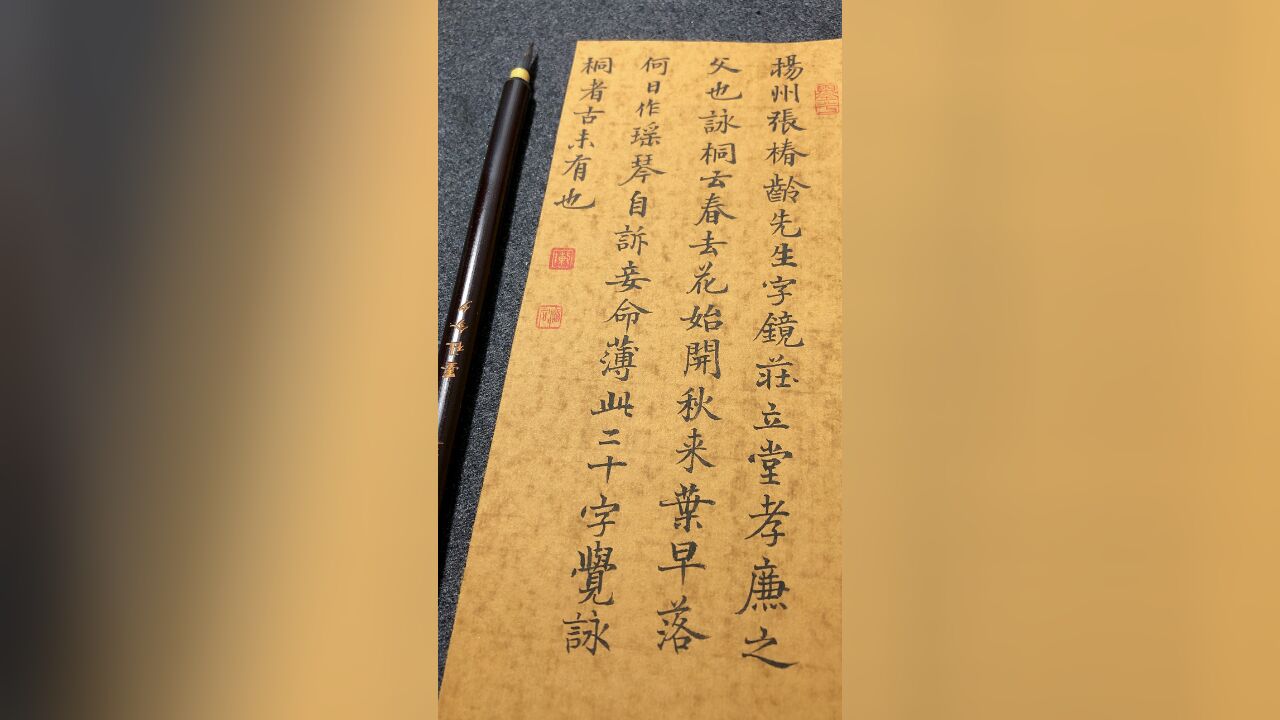 揚州張椿齡先生字鏡莊立堂孝廉之
父也詠桐云春去花始開秋来葉早落
何日作瑶琴自訴妾命薄此二十字覺詠
桐者古未有也